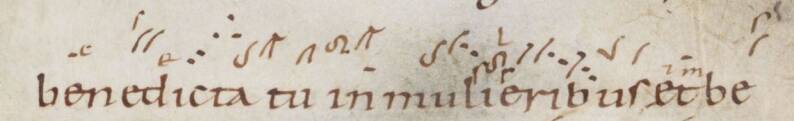 benedicta tu in mulieribus et be